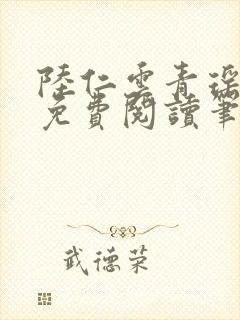 陸仁雲青瑤
免費閱讀筆
武德荣